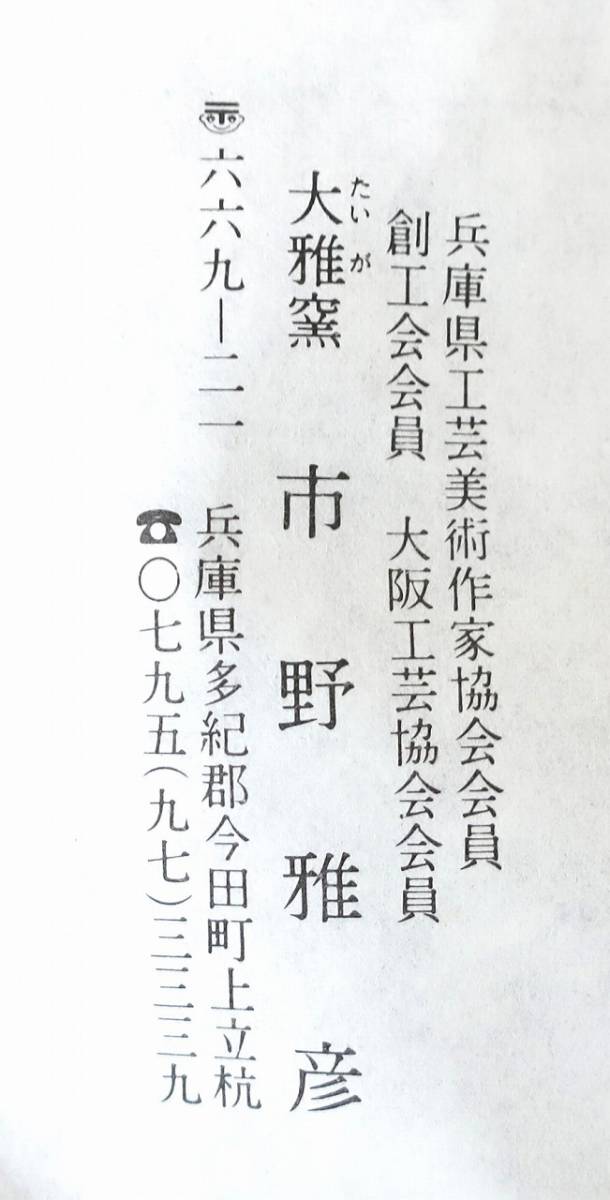 兵庫県工芸美術作家協会会員
創工会会員　大阪工芸協会会員
大雅窯　市野雅彦
たいが
〠六六九―二一　兵庫県多紀郡今田町上立杭
☎〇七九五(九七)三三三九